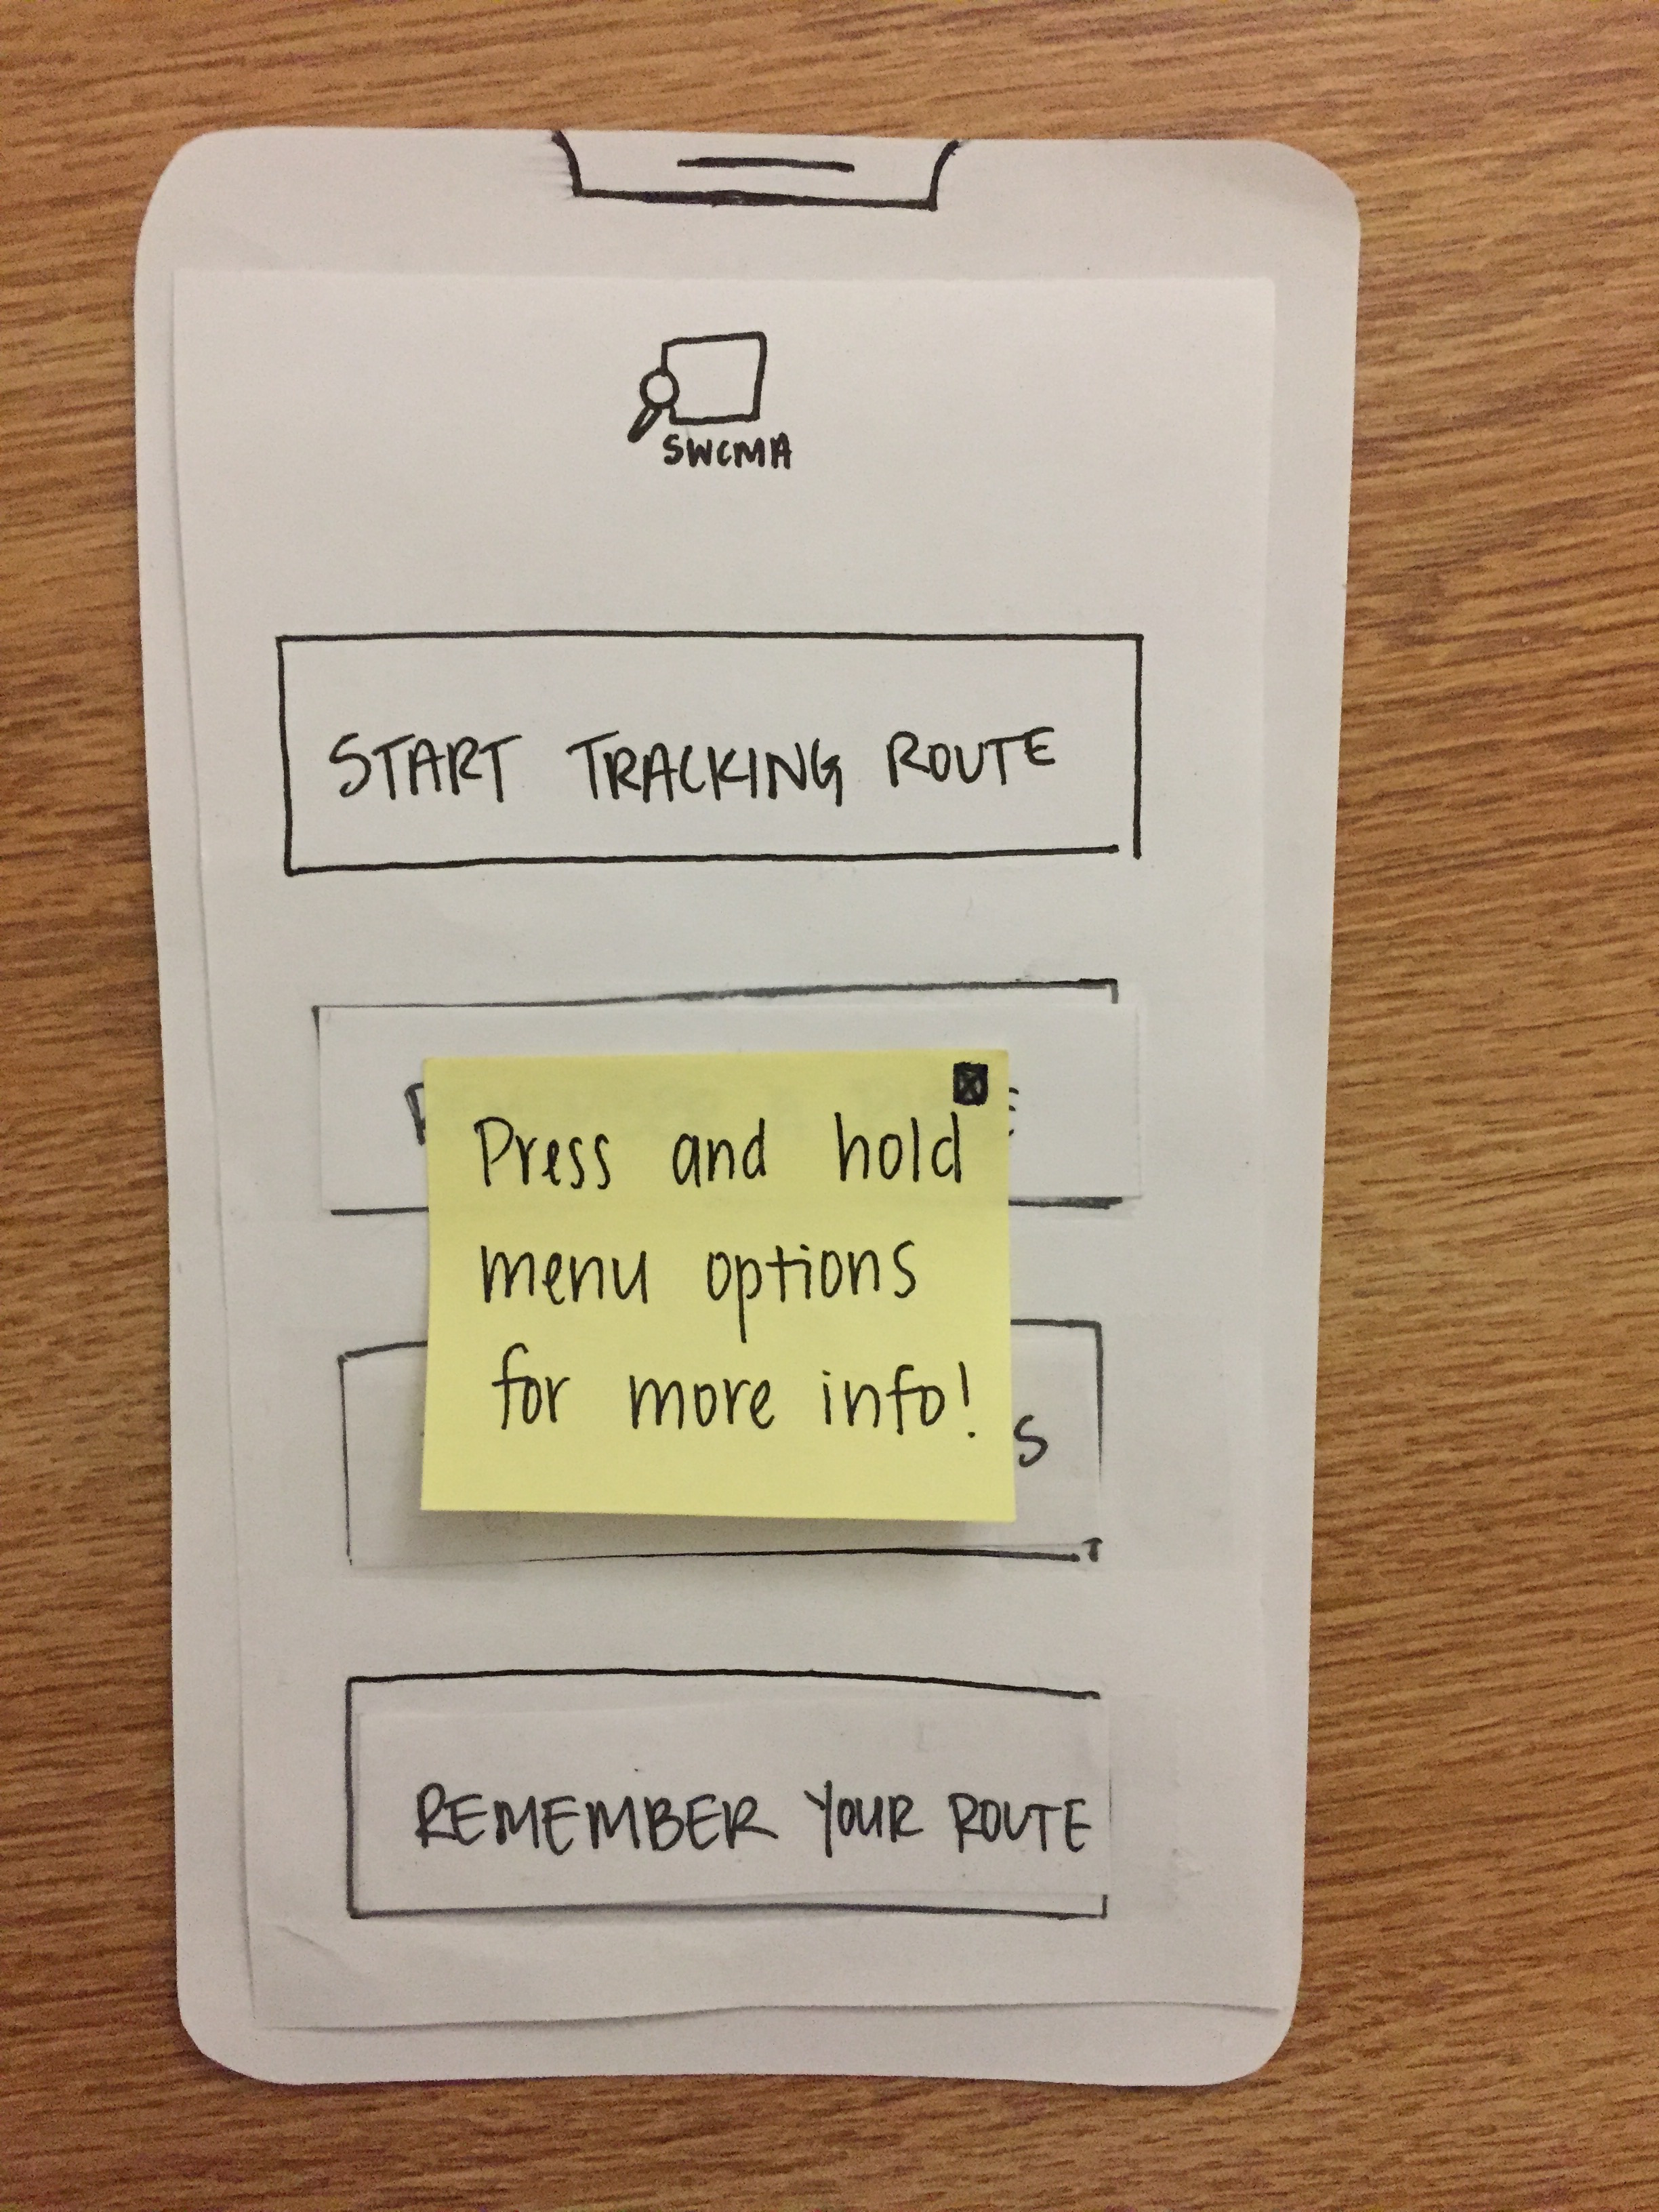 SWCMA
START TRACKING ROUTE
Press and hold
menu options
for more info!
S
REMEMBER YOUR ROUTE